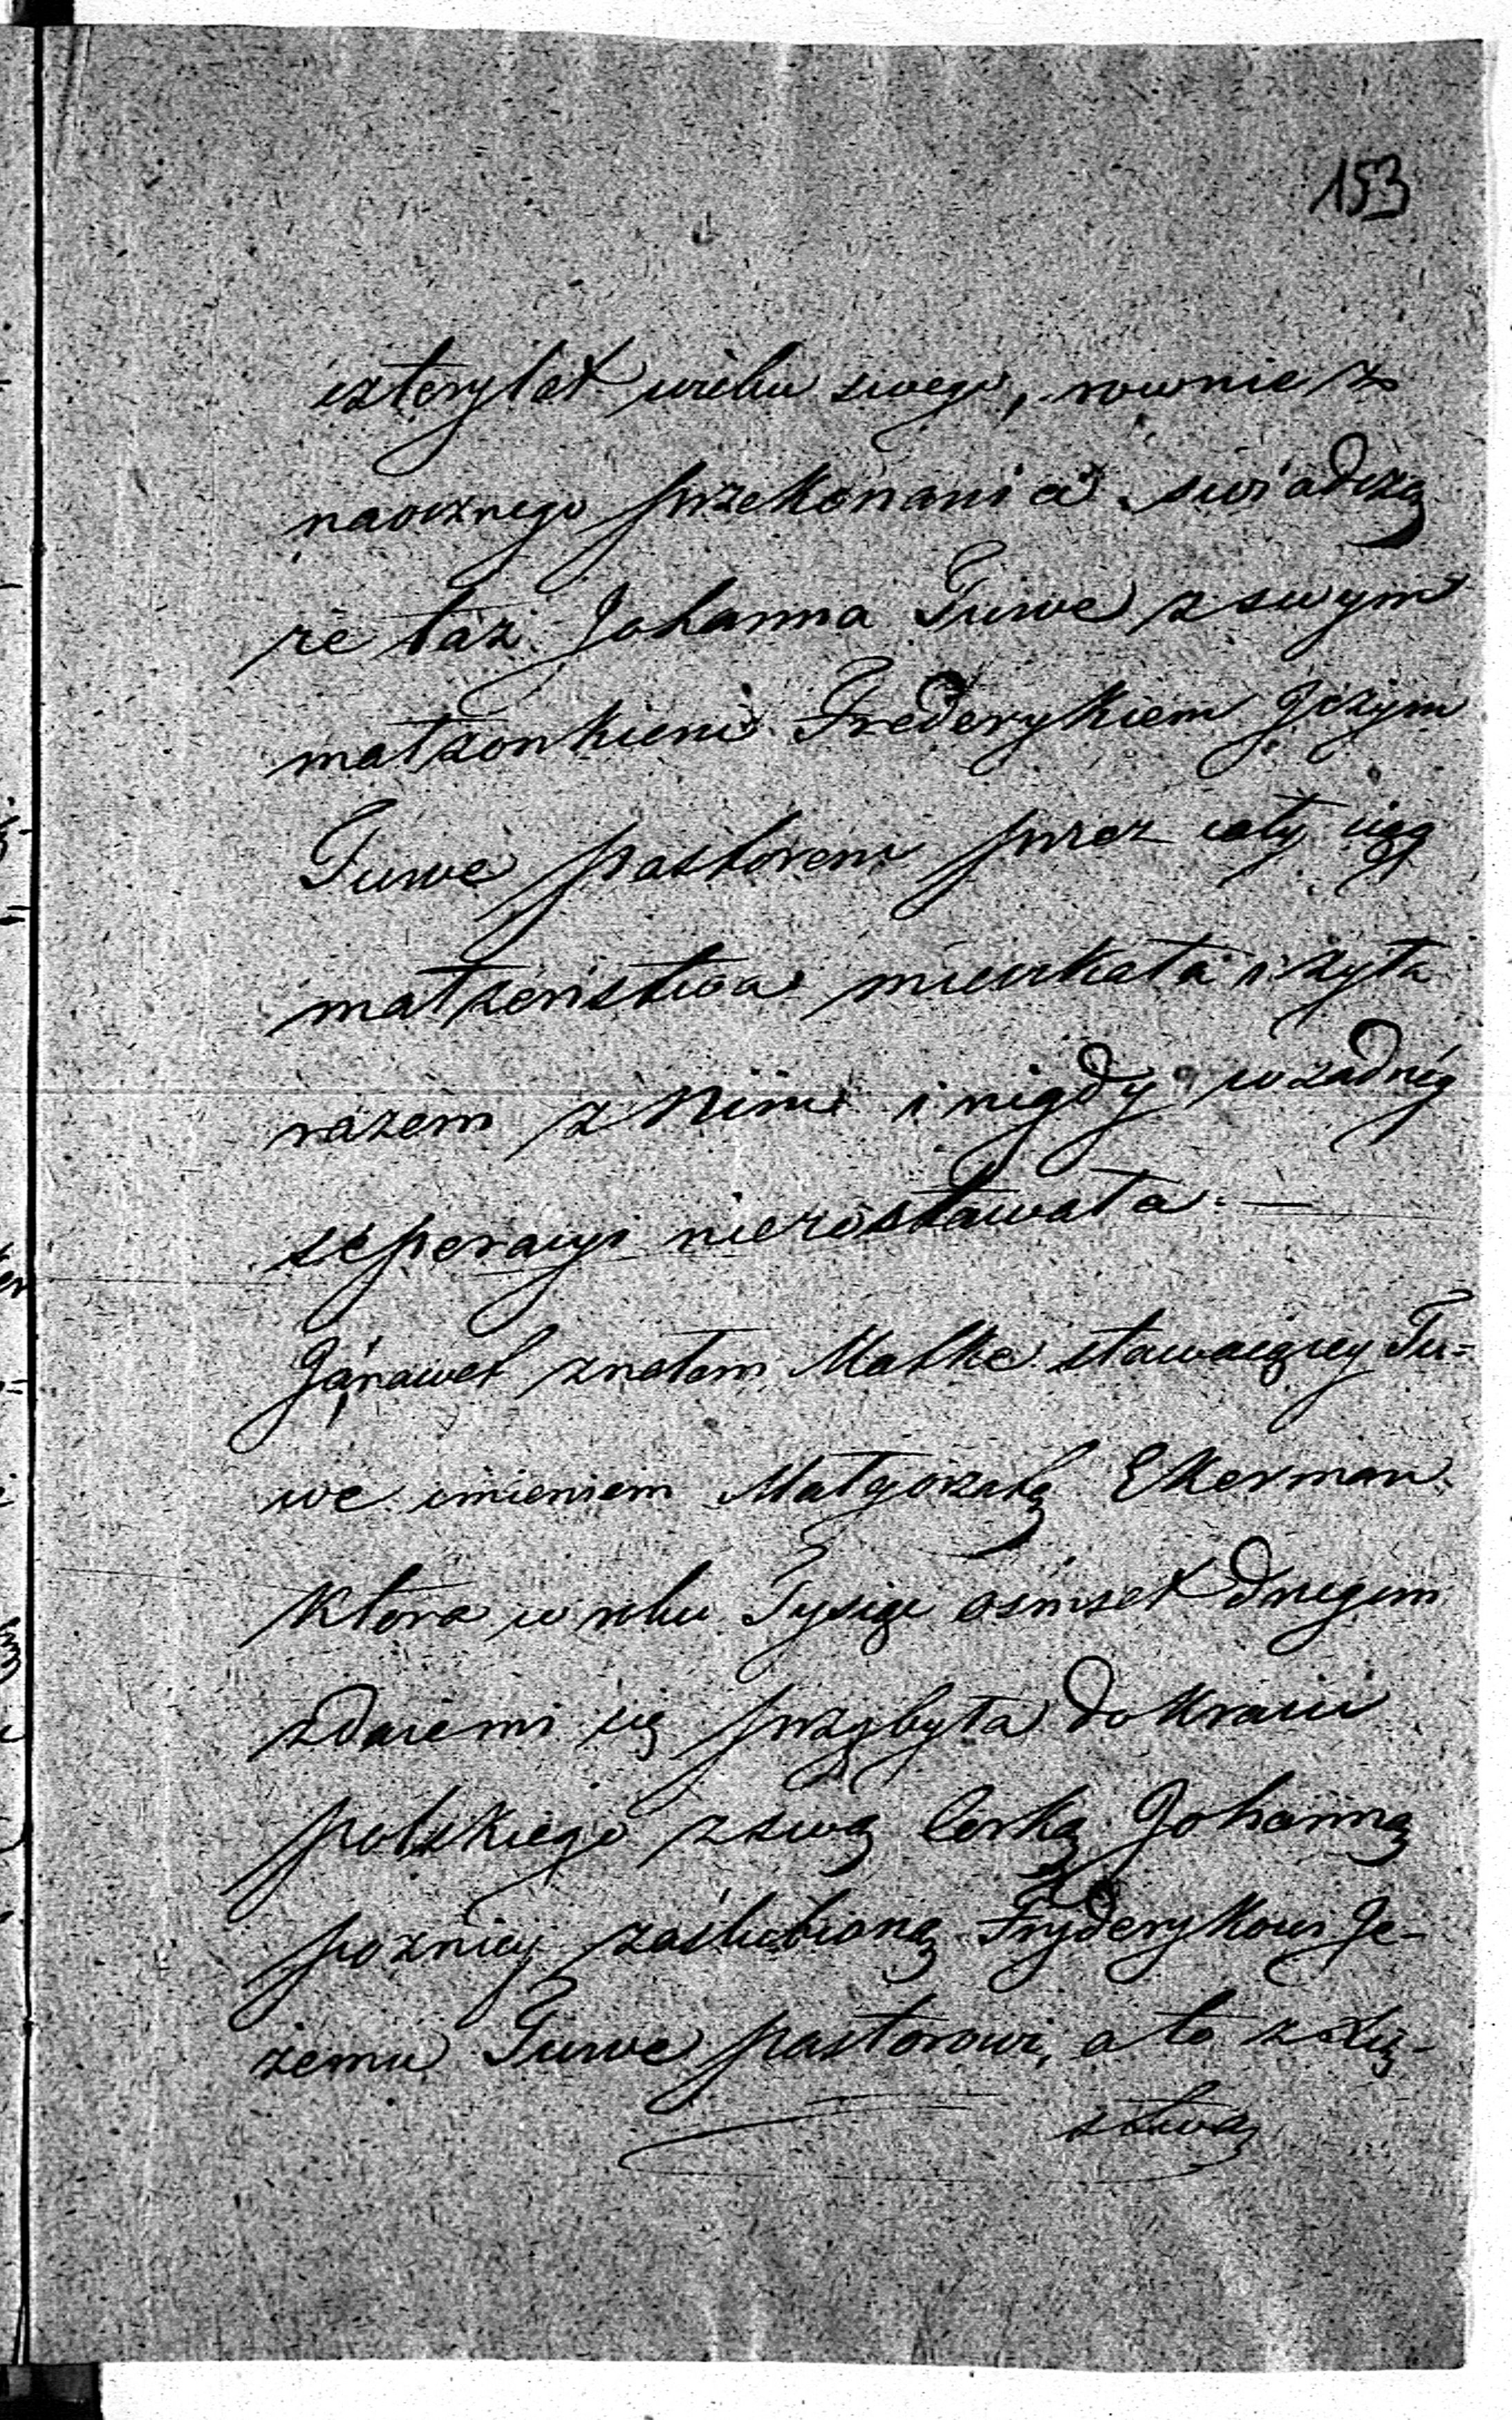 153
czterylat wieku swego, rownie z
naocznego przekonania swiadczą
że taż Johanna Tuwe z swym
małżonkiem Frederykiem Jeżym
Tuwe pastorem przez cały ciąg
małżeństwa mieszkała i żyła
razem z Nim i nigdy w żadnéy
séperacyi nierostawała. —
Ja nawet znałem Matkę stawaiącey Tu=
we imieniem Małgorzatą Ekerman
która w roku Tysiąc osmset drugim
zdaiemi się przybyła do Kraiu
polskiego zswą Corką Johanną
pozniey zaślubioną Fryderykowi Je-
żemu Tuwe pastorowi, a to z
stwa